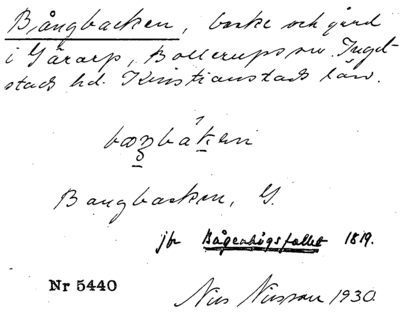 Bångbacken, backe och gård
i Gårarp, Bollerups sn. Ingel-
stads hd. Kristianstads län.
Bangbacken, G.
jfr Bågenhögsfallet 1819.
Nr 5440
Nils Nilsson 1930.